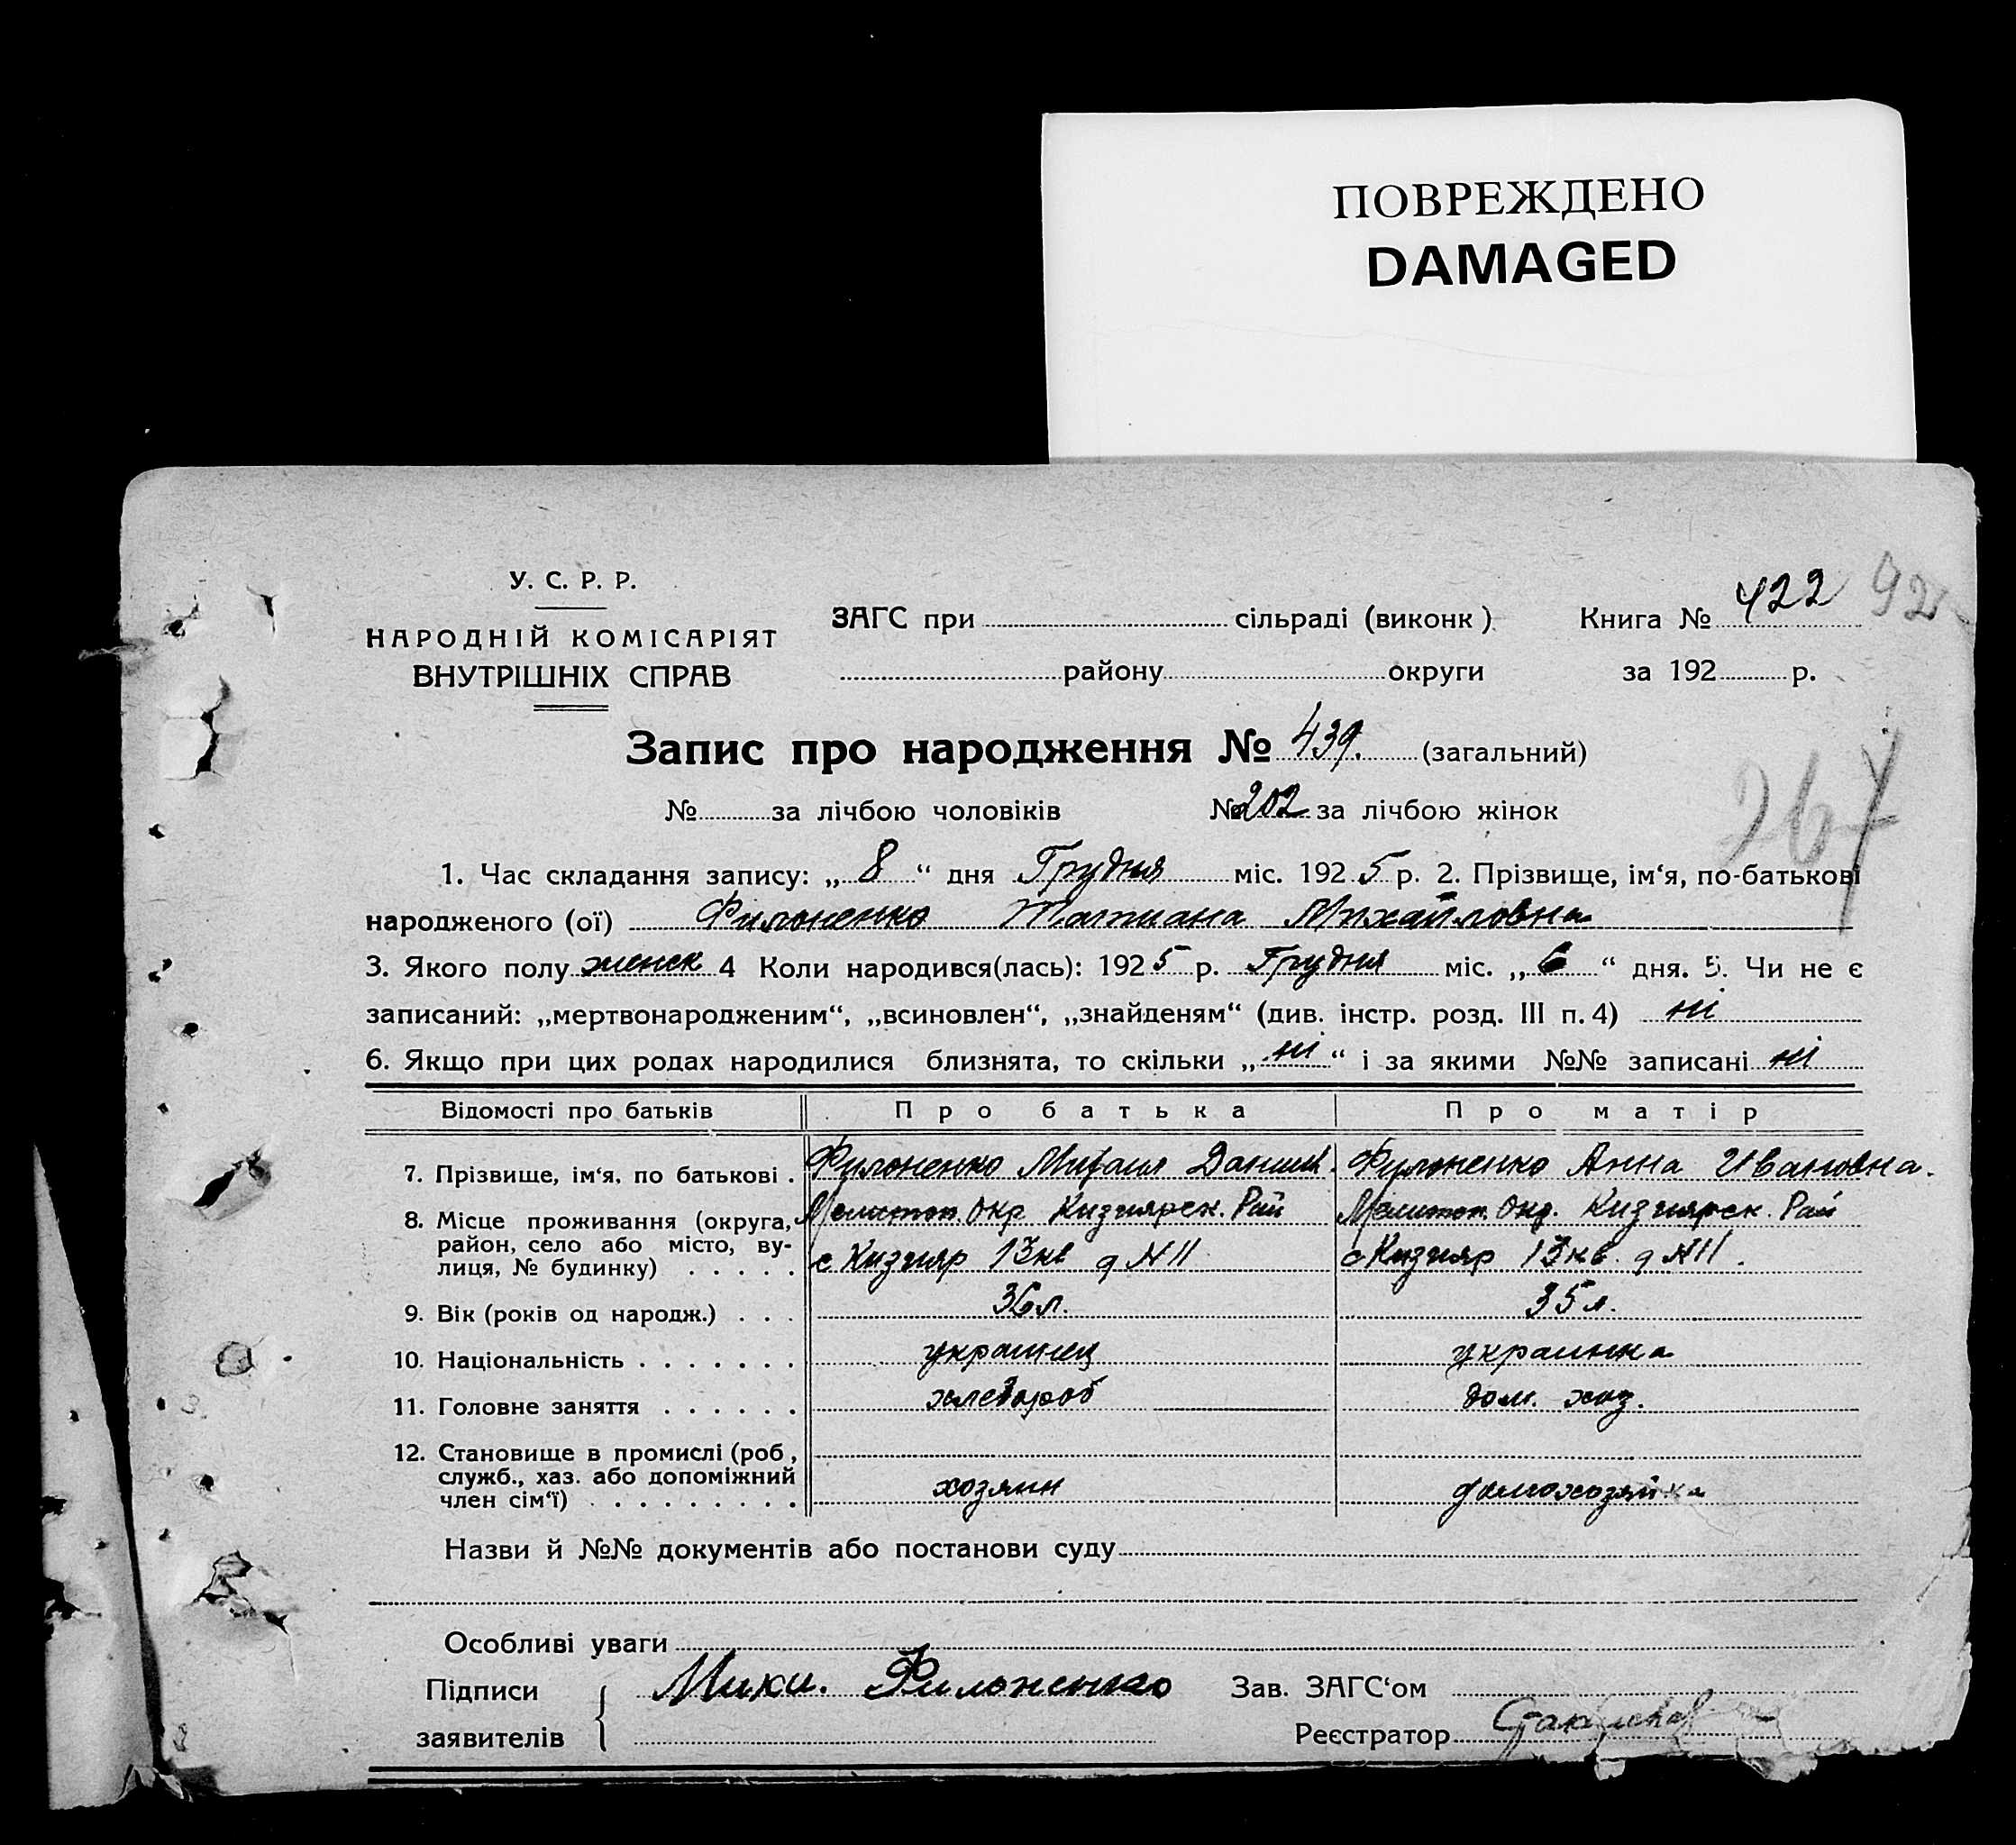 ПОВРЕЖДЕНО
DAMAGED
У. С. Р. Р.
НАРОДНІЙ КОМІСАРІЯТ
ВНУТРІШНІХ СПРАВ
ЗАГС при сільраді (виконк) Книга № 422 92
району округи за 192 р.
Запис про народження № 439. (загальний)
№ за лічбою чоловіків № 202 за лічбою жінок
267
1. Час складання запису: „ 8 “ дня Грудня міс. 192 5 р. 2. Прізвище, ім‘я, по-батькові
народженого (ої) Филоненко Татиана Михайловна
3. Якого полу женск 4 Коли народився(лась): 192 5 р. Грудня міс. „ 6 “ дня. 5. Чи не є
записаний: „мертвонародженим“, „всиновлен“, „знайденям“ (див. інстр. розд. III п. 4) ні
6. Якщо при цих родах народилися близнята, то скільки „ ні “ і за якими №№ записані ні
Відомості про батьків Про батька Про матір
7. Прізвище, ім‘я, по батькові . Филоненко Михаил Данил. Филоненко Анна Ивановна.
8. Місце проживання (округа, Мелитоп. Окр Кизиярск. Рай Мелитоп. Окр. Кизиярск. Рай
район, село або місто, ву-
лиця, № будинку) . . . . . с Кизияр 13 кв д N 11 с Кизияр 13 кв. д N 11.
9. Вік (років од народж.) . . . 36 л. 35 л.
10. Національність . . . . . . . украинец украинка
11. Головне заняття . . . . . . хлебороб дом. хоз.
12. Становище в промислі (роб,
служб., хаз. або допоміжний
член сім‘ї) . . . . . . . . . хозяин домохозяйка
Назви й №№ документів або постанови суду
Особливі уваги
Підписи Михи. Филоненко Зав. ЗАГС‘ом
заявителів Реєстратор